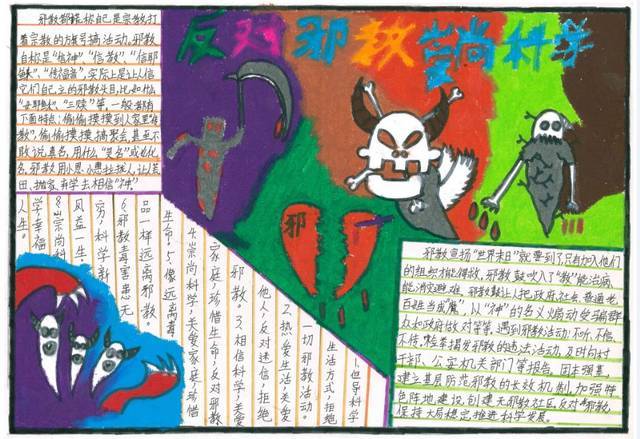 反对邪教 崇尚科学
邪教都称自己是宗教,打
着宗教的旗号搞活动。邪教
自称是“信神”、“信教”、“信耶
稣”、“传福音”,实际上是让人信
它们自己立的邪教头目,比如信
“女耶稣”、“三赎”等,一般都有
下面特点:偷偷摸摸到人家里“传
教”,偷偷摸摸搞聚会,甚至不
敢说真名,用什么“灵名”或者化
名,邪教用小恩小惠拉拢人,让人荒
田、抛家、弃学去相信“神”
1.倡导科学
生活方式,拒绝
一切邪教活动。
2.热爱生活,关爱
他人,反对迷信,拒绝
邪教。3.相信科学,关爱
家庭,珍惜生命。
4.崇尚科学,关爱家庭,珍惜
生命。5.像远离毒
品一样远离邪教。
6.邪教毒害患无
穷,科学新
风益一生。
8.崇尚科
学,幸福
人生。
邪
邪教宣扬“世界末日”就要到了,只有加入他们
的组织才能得救。邪教鼓吹入了“教”能治病,
能消灾避难。邪教鼓让人把政府、社会、普通老
百姓当成“魔”,以“神”的名义煽动受骗群
众和政府做对等等。遇到邪教活动:不听、不信、
不传,检举揭发邪教的违法活动,及时向村
干部、公安机关部门等报告。固本强基,
建立基层防范邪教的长效机制,加强特
色阵地建设,创建无邪教社区。反对邪教,
保持大局稳定推进科学发展。